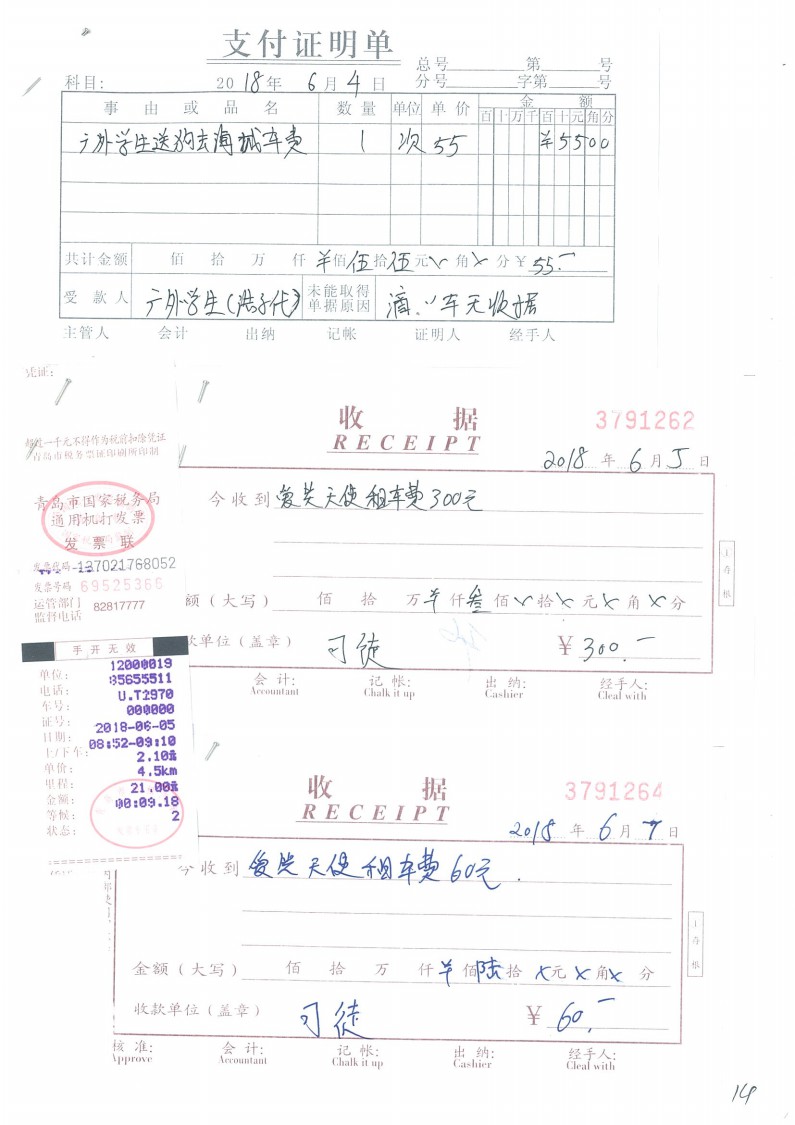 支付证明单
总号 第 号
科目: 2018年 6月 4日 分号 字第 号
事由或品名 数量 单位 单价 金额
百十万千百十元角分
广外学生送狗去海城车费 1 次 55 ¥5500
共计金额 佰 拾 万 仟 ¥佰 伍拾 伍元 \角 ×分 ¥ 55.-
受款人 广外学生(洪子代) 未能取得单据原因 滴滴车无收据
主管人 会计 出纳 记帐 证明人 经手人
凭证:
超过一千元不得作为税前扣除凭证
青岛市税务票证印刷所印制
青岛市国家税务局
通用机打发票
发票联
发票代码 137021768052
发票号码 69525366
运管部门
监督电话 82817777
手开无效
12000019
单位: 85655511
电话: U.T2970
车号: 000000
证号: 2018-06-05
日期: 08:52-09:10
上/下车: 2.10元
单价: 4.5km
里程: 21.00元
金额: 00:09.18
等候: 2
状态:
收据 3791262
RECEIPT
2018年 6月 5日
今收到 爱美天使租车费300元
额(大写) 佰 拾 万 ¥仟 叁佰 \拾 ×元 ×角 ×分
款单位(盖章) 司徒 ¥ 300.-
会计: 记帐: 出纳: 经手人:
Accountant Chalk it up Cashier Cleal with
收据 3791264
RECEIPT
2018年 6月 7日
今收到 爱美天使租车费60元.
金额(大写) 佰 拾 万 仟 ¥佰 陆拾 ×元 ×角 × 分
收款单位(盖章) 司徒 ¥ 60.-
核准: 会计: 记帐: 出纳: 经手人:
Approve Accountant Chalk it up Cashier Cleal with
14